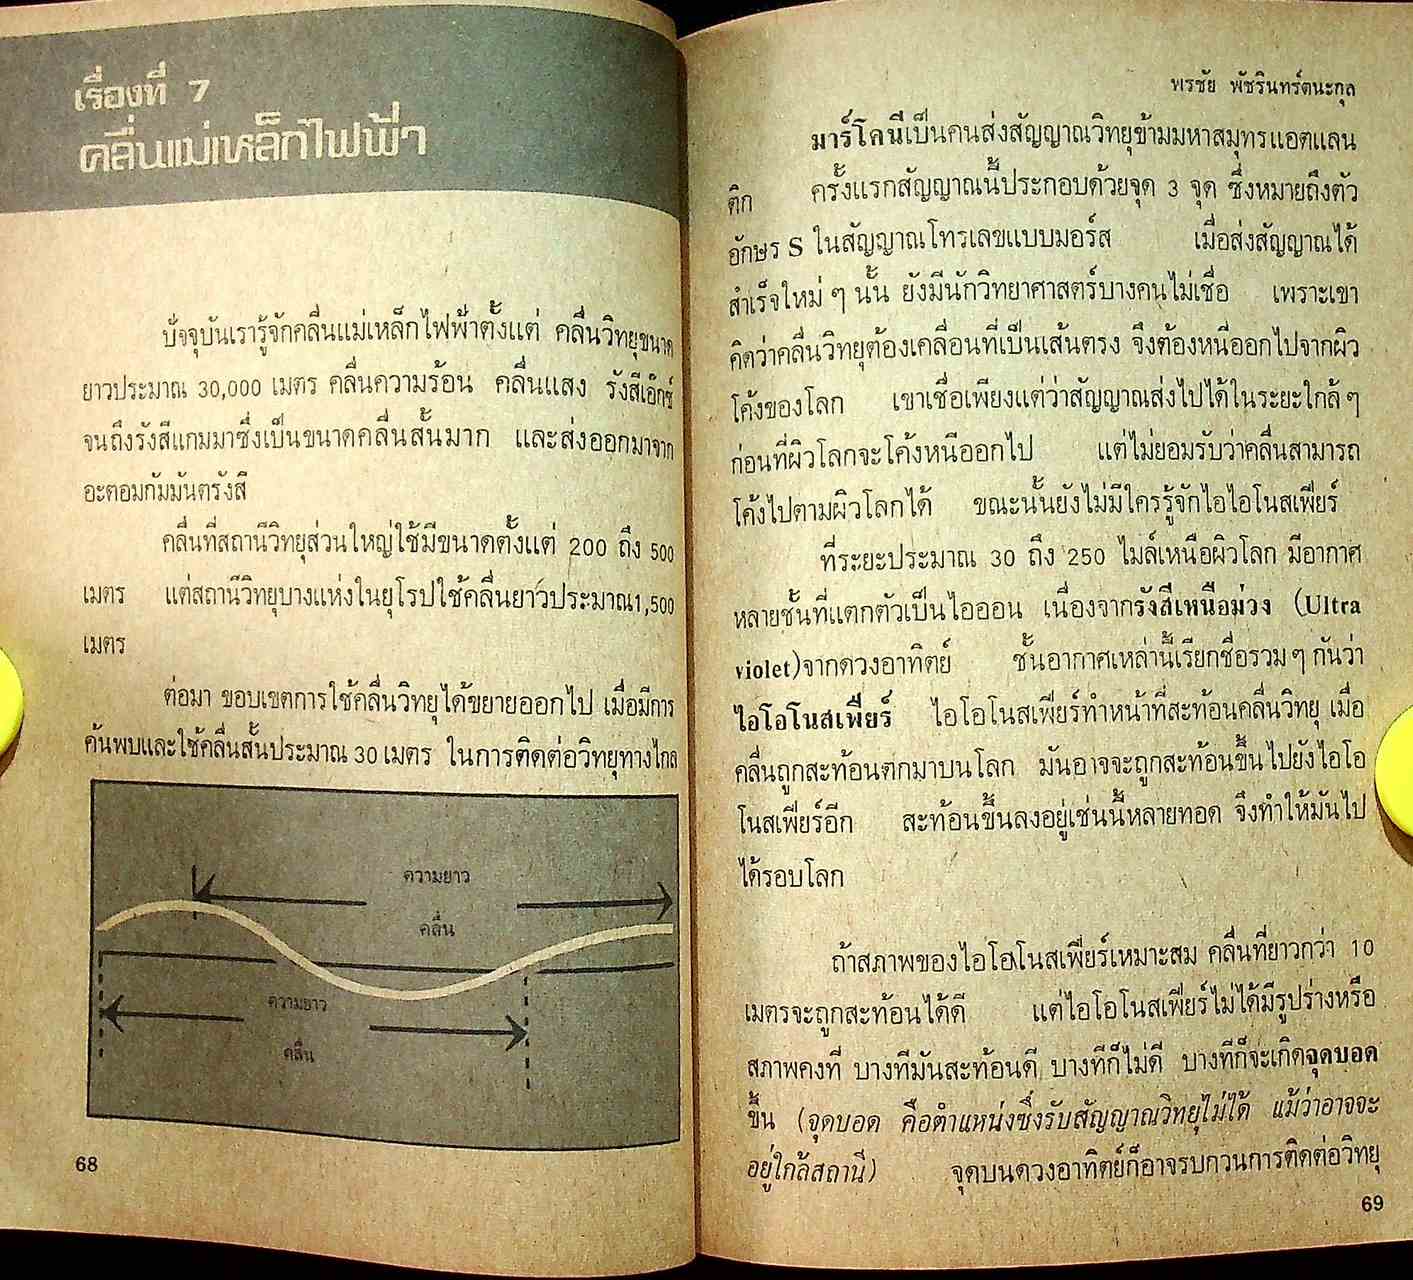 เรื่องที่ 7
คลื่นแม่เหล็กไฟฟ้า
ปัจจุบันเรารู้จักคลื่นแม่เหล็กไฟฟ้าตั้งแต่ คลื่นวิทยุขนาด
ยาวประมาณ 30,000 เมตร คลื่นความร้อน คลื่นแสง รังสีเอ๊กซ์
จนถึงรังสีแกมมาซึ่งเป็นขนาดคลื่นสั้นมาก และส่งออกมาจาก
อะตอมกัมมันตรังสี
คลื่นที่สถานีวิทยุส่วนใหญ่ใช้มีขนาดตั้งแต่ 200 ถึง 500
เมตร แต่สถานีวิทยุบางแห่งในยุโรปใช้คลื่นยาวประมาณ1,500
เมตร
ต่อมา ขอบเขตการใช้คลื่นวิทยุได้ขยายออกไป เมื่อมีการ
ค้นพบและใช้คลื่นสั้นประมาณ 30 เมตร ในการติดต่อวิทยุทางไกล
ความยาว
คลื่น
ความยาว
คลื่น
68
พรชัย พัชรินทร์ตนะกุล
มาร์โคนีเป็นคนส่งสัญญาณวิทยุข้ามมหาสมุทรแอตแลน
ติก ครั้งแรกสัญญาณนี้ประกอบด้วยจุด 3 จุด ซึ่งหมายถึงตัว
อักษร S ในสัญญาณโทรเลขแบบมอร์ส เมื่อส่งสัญญาณได้
สำเร็จใหม่ ๆ นั้น ยังมีนักวิทยาศาสตร์บางคนไม่เชื่อ เพราะเขา
คิดว่าคลื่นวิทยุต้องเคลื่อนที่เป็นเส้นตรง จึงต้องหนีออกไปจากผิว
โค้งของโลก เขาเชื่อเพียงแต่ว่าสัญญาณส่งไปได้ในระยะใกล้ ๆ
ก่อนที่ผิวโลกจะโค้งหนีออกไป แต่ไม่ยอมรับว่าคลื่นสามารถ
โค้งไปตามผิวโลกได้ ขณะนั้นยังไม่มีใครรู้จักไอโอโนสเฟียร์
ที่ระยะประมาณ 30 ถึง 250 ไมล์เหนือผิวโลก มีอากาศ
หลายชั้นที่แตกตัวเป็นไอออน เนื่องจากรังสีเหนือม่วง (Ultra
violet)จากดวงอาทิตย์ ชั้นอากาศเหล่านี้เรียกชื่อรวม ๆ กันว่า
ไอโอโนสเฟียร์ ไอโอโนสเฟียร์ทำหน้าที่สะท้อนคลื่นวิทยุ เมื่อ
คลื่นถูกสะท้อนตกมาบนโลก มันอาจจะถูกสะท้อนขึ้นไปยังไอโอ
โนสเฟียร์อีก สะท้อนขึ้นลงอยู่เช่นนี้หลายทอด จึงทำให้มันไป
ได้รอบโลก
ถ้าสภาพของไอโอโนสเฟียร์เหมาะสม คลื่นที่ยาวกว่า 10
เมตรจะถูกสะท้อนได้ดี แต่ไอโอโนสเฟียร์ไม่ได้มีรูปร่างหรือ
สภาพคงที่ บางทีมันสะท้อนดี บางทีก็ไม่ดี บางทีก็จะเกิดจุดบอด
ขึ้น (จุดบอด คือตำแหน่งซึ่งรับสัญญาณวิทยุไม่ได้ แม้ว่าอาจจะ
อยู่ใกล้สถานี) จุดบนดวงอาทิตย์ก็อาจรบกวนการติดต่อวิทยุ
69